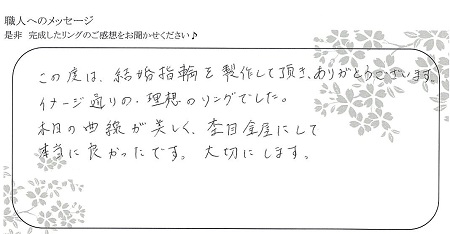 職人へのメッセージ
是非 完成したリングのご感想をお聞かせください♪
この度は、結婚指輪を製作して頂き、ありがとうございます。
イメージ通りの・理想のリングでした。
木目の曲線が美しく、杢目金屋にして
本当に良かったです。大切にします。